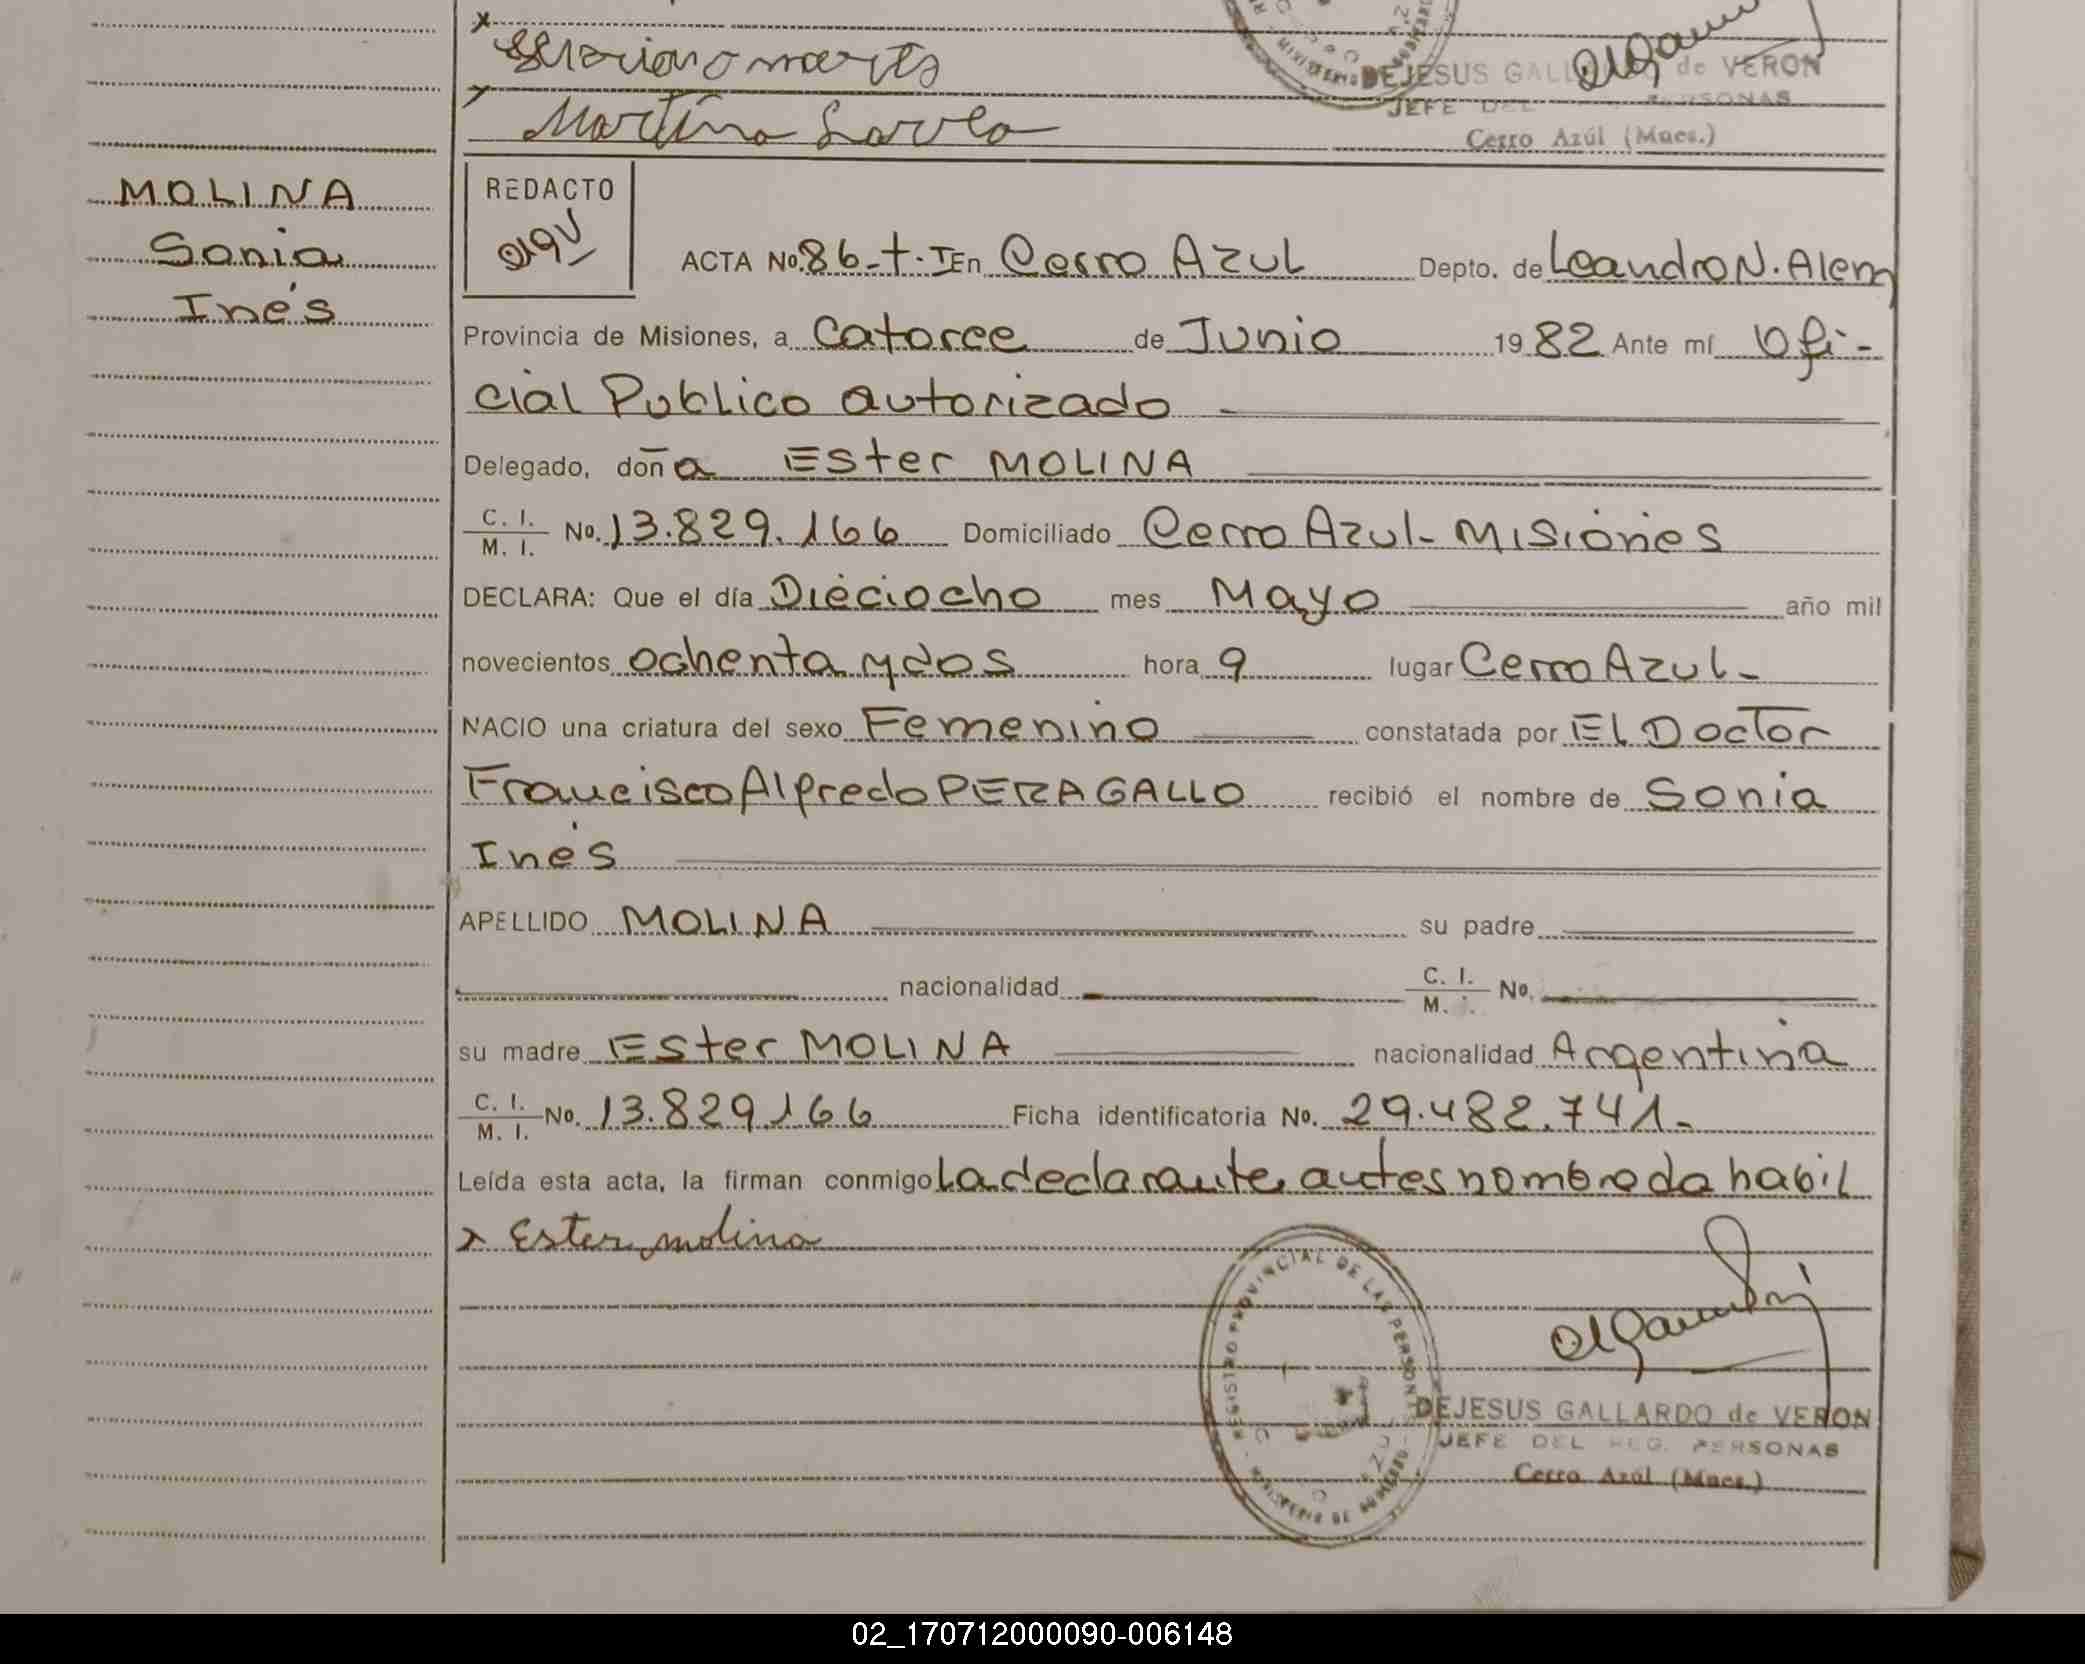 Mariano
Martina
DEJESUS GALLARDO de VERON
JEFE DEL PERSONAS
Cerro Azúl (Mnes.)
MOLINA
Sonia
Inés
REDACTO
ACTA No. 86-t.I En Cerro Azul Depto. de Leandro N. Alem
Provincia de Misiones, a Catorce de Junio 1982 Ante mí Ofi-
cial Publico autorizado
Delegado, doña Ester MOLINA
C. I. / M. I. No. 13.829.166 Domiciliado Cerro Azul - Misiones
DECLARA: Que el día Dieciocho mes Mayo año mil
novecientos ochenta y dos hora 9 lugar Cerro Azul -
NACIO una criatura del sexo Femenino constatada por El Doctor
Francisco Alfredo PERAGALLO recibió el nombre de Sonia
Inés
APELLIDO MOLINA su padre
nacionalidad C. I. / M. I. No.
su madre Ester MOLINA nacionalidad Argentina
C. I. / M. I. No. 13.829.166 Ficha identificatoria No. 29.482.741.-
Leída esta acta, la firman conmigo La declarante antes nombrada habil
x Ester molina
REGISTRO PROVINCIAL DE LAS PERSONAS
DEJESUS GALLARDO de VERON
JEFE DEL REG. PERSONAS
Cerro Azúl (Mnes.)
02_170712000090-006148